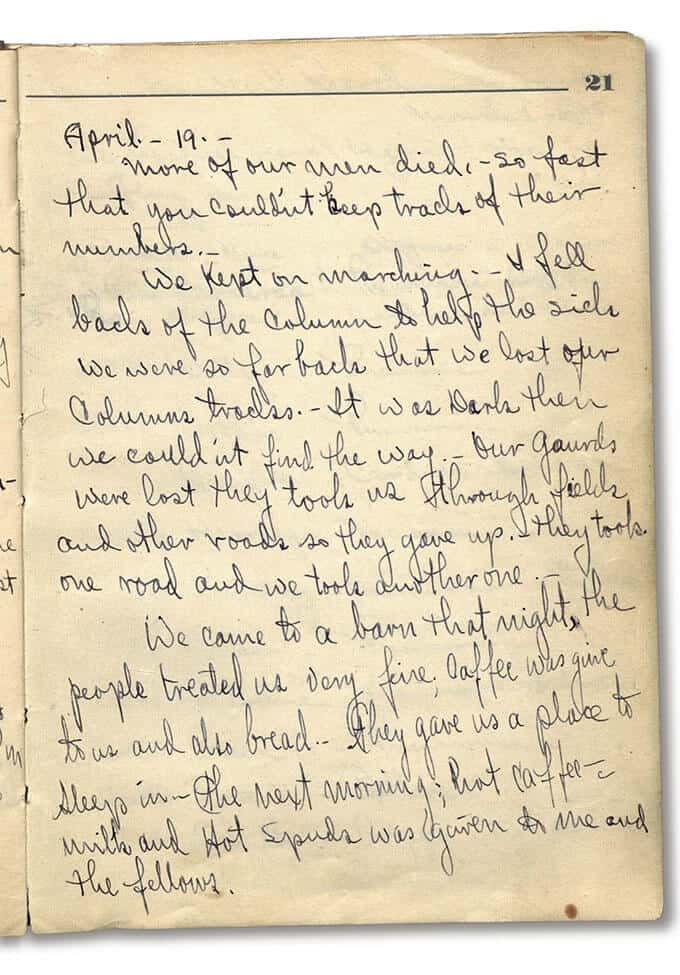 21
April - 19. -
more of our men died, - so fast
that you could'nt keep track of their
numbers. -
We kept on marching. - I fell
back of the column to help the sick
we were so far back that we lost our
Columns tracks. - It was Dark then
we could'nt find the way. - Our Gaurds
were lost they took us through fields
and other roads so they gave up. - they took
one road and we took another one. -
We came to a barn that night, the
people treated us very fine, Caffee was give
to us and also bread. - They gave us a place to
sleep in - The next morning; hot caffee -
milk and Hot Spuds was given to me and
the fellows.